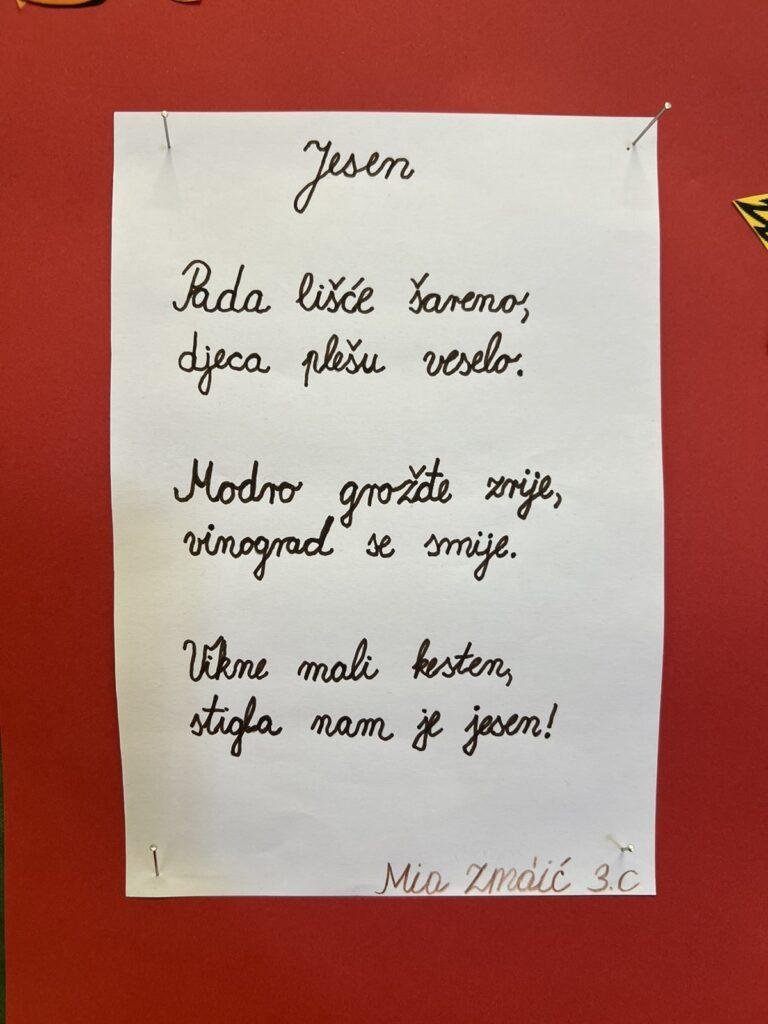 Jesen
Pada lišće šareno,
djeca plešu veselo.
Modro grožđe zrije,
vinograd se smije.
Vikne mali kesten,
stigla nam je jesen!
Mia Zmaić 3.c